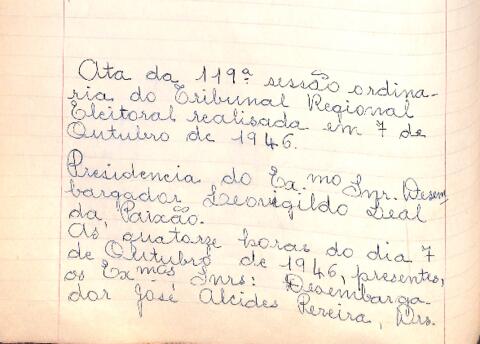 Ata da 119ª sessão ordina-
ria do Tribunal Regional
Eleitoral realisada em 7 de
Outubro de 1946.
Presidencia do Exmo Snr. Desem
bargador Leovigildo Leal
da Paixão.
As quatorze horas do dia 7
de Outubro de 1946, presentes,
os Exmos Snrs: Desembarga-
dor José Alcides Pereira, Drs.